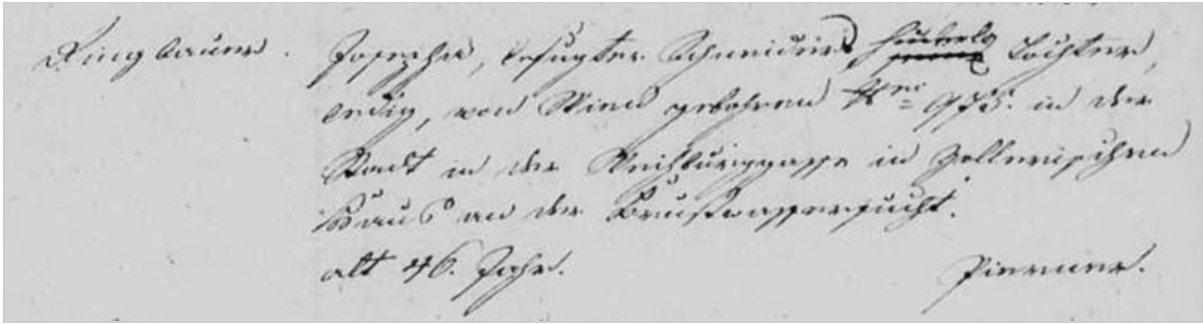 Ringbauer. Josepha, befugter Schneiders Tochter,
ledig, von Wien gebohren N<sup>ro</sup> 975. in der
Stadt in der Weihburggasse in Zollerischen
Haus an der Brustwassersucht.
alt 46. Jahr.